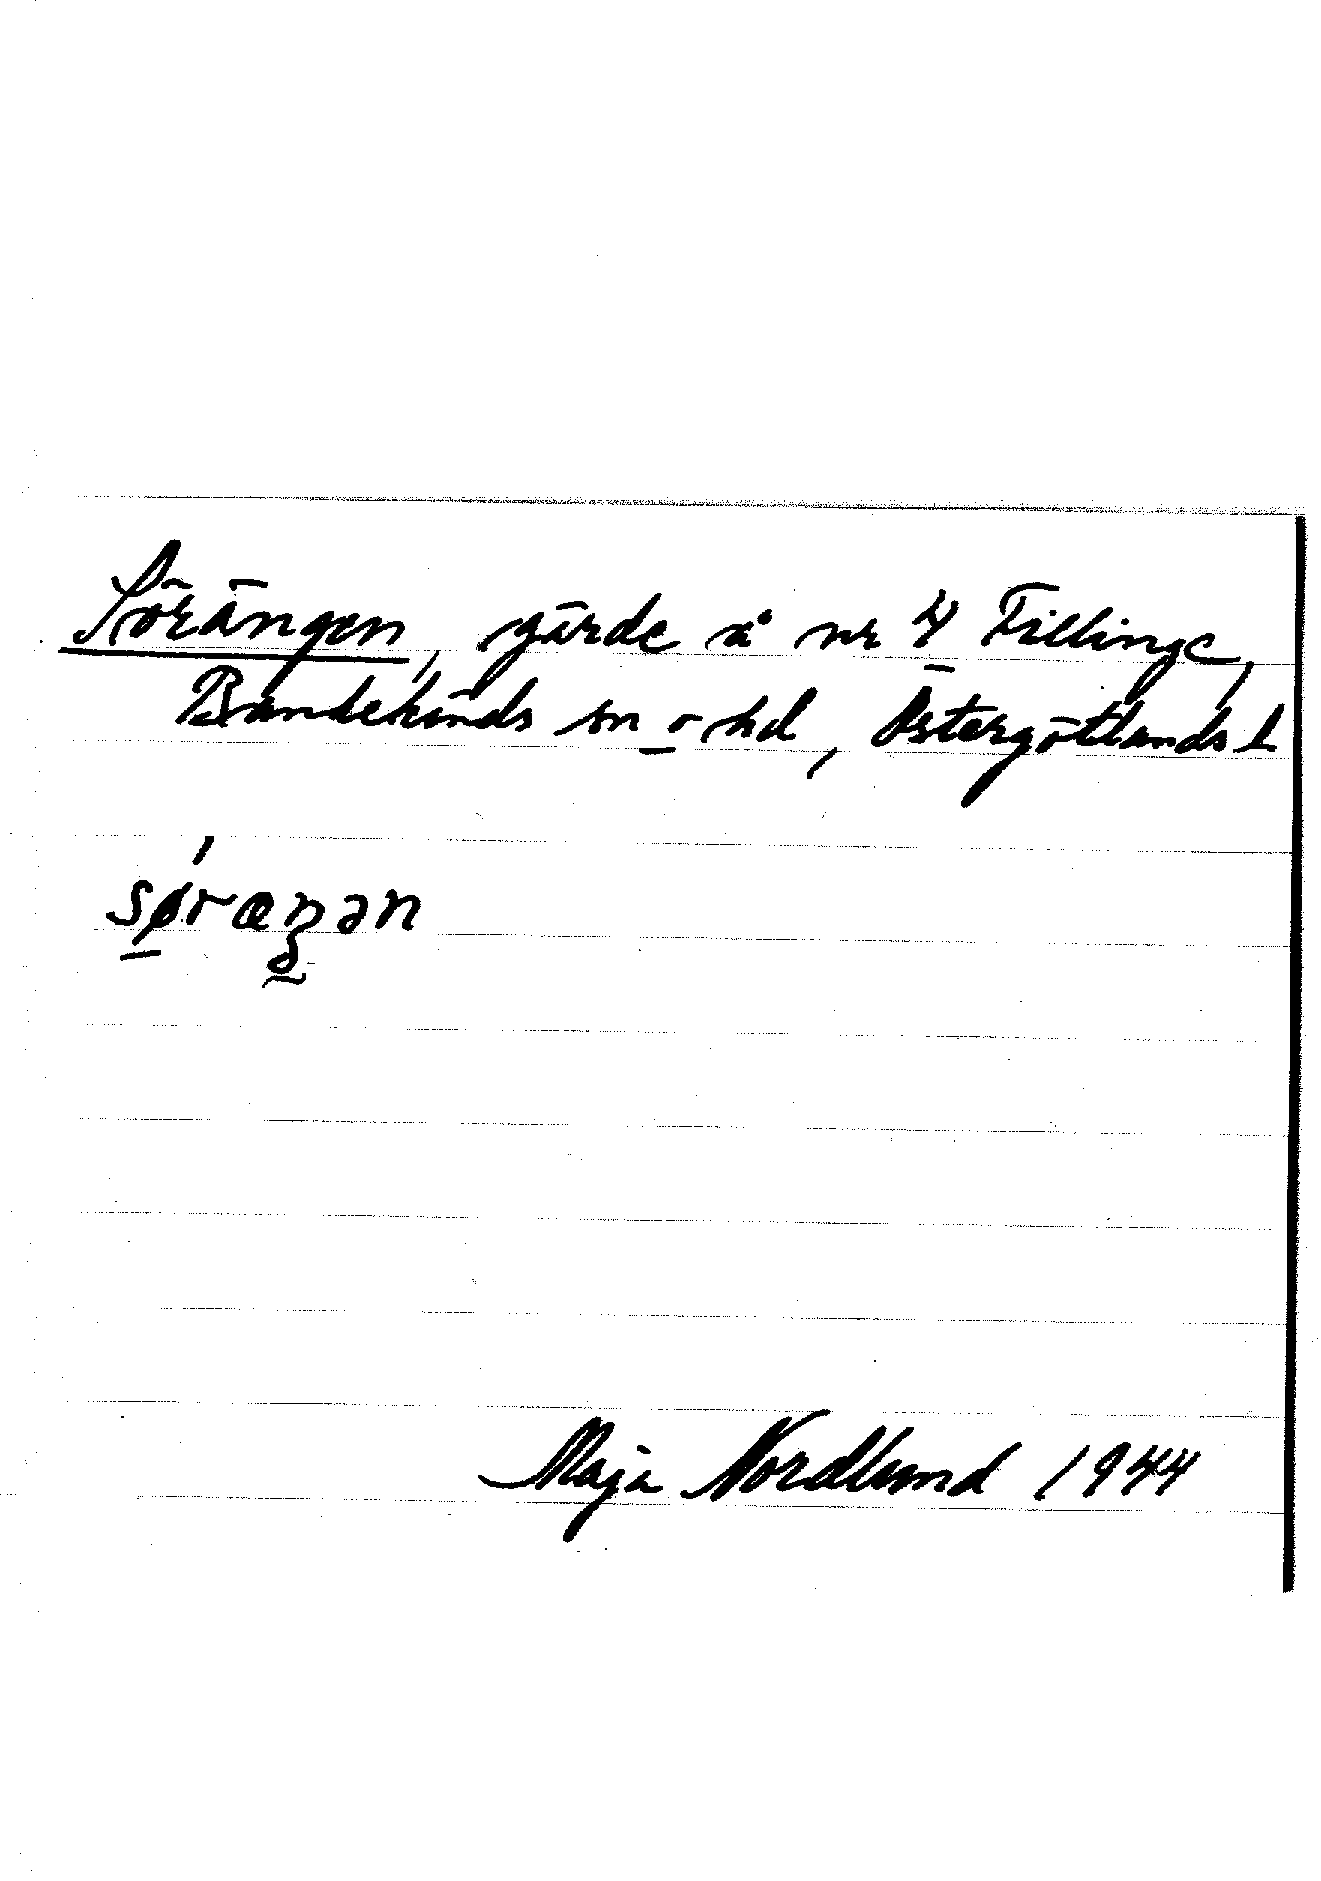 Sörängen, gärde å nr 4 Fillinge,
Bankekinds sn o hd, Östergötlands l
søræŋən
Maja Nordlund 1944